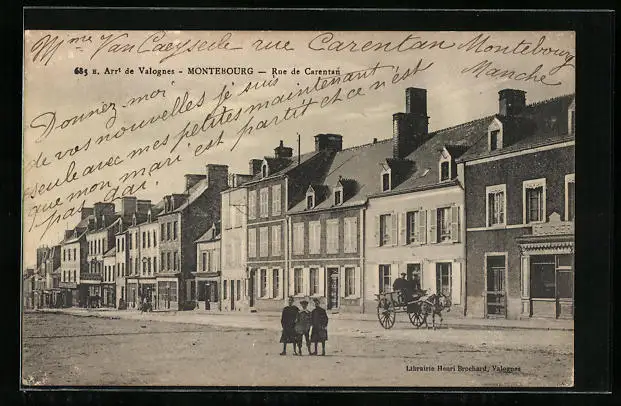 Mme Van Caeysele rue Carentan Montebourg
Manche
685 E. Arrt de Valognes - MONTEBOURG - Rue de Carentan
Donnez moi
de vos nouvelles je suis
seule avec mes petites maintenant
que mon mari est partit et ce n'est
pas gai.
Librairie Henri Brochard, Valognes